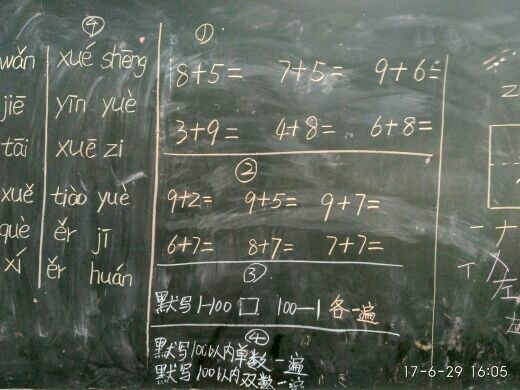 ④
wǎn xué shēng
jiē yīn yuè
tāi xuē zi
xuě tiào yuè
què ěr jī
xí ěr huán
①
8+5= 7+5= 9+6=
3+9= 4+8= 6+8=
②
9+2= 9+5= 9+7=
6+7= 8+7= 7+7=
③
默写1-100 口 100—1 各一遍
④
默写100以内单数一遍
默写100以内双数一遍
17-6-29 16:05